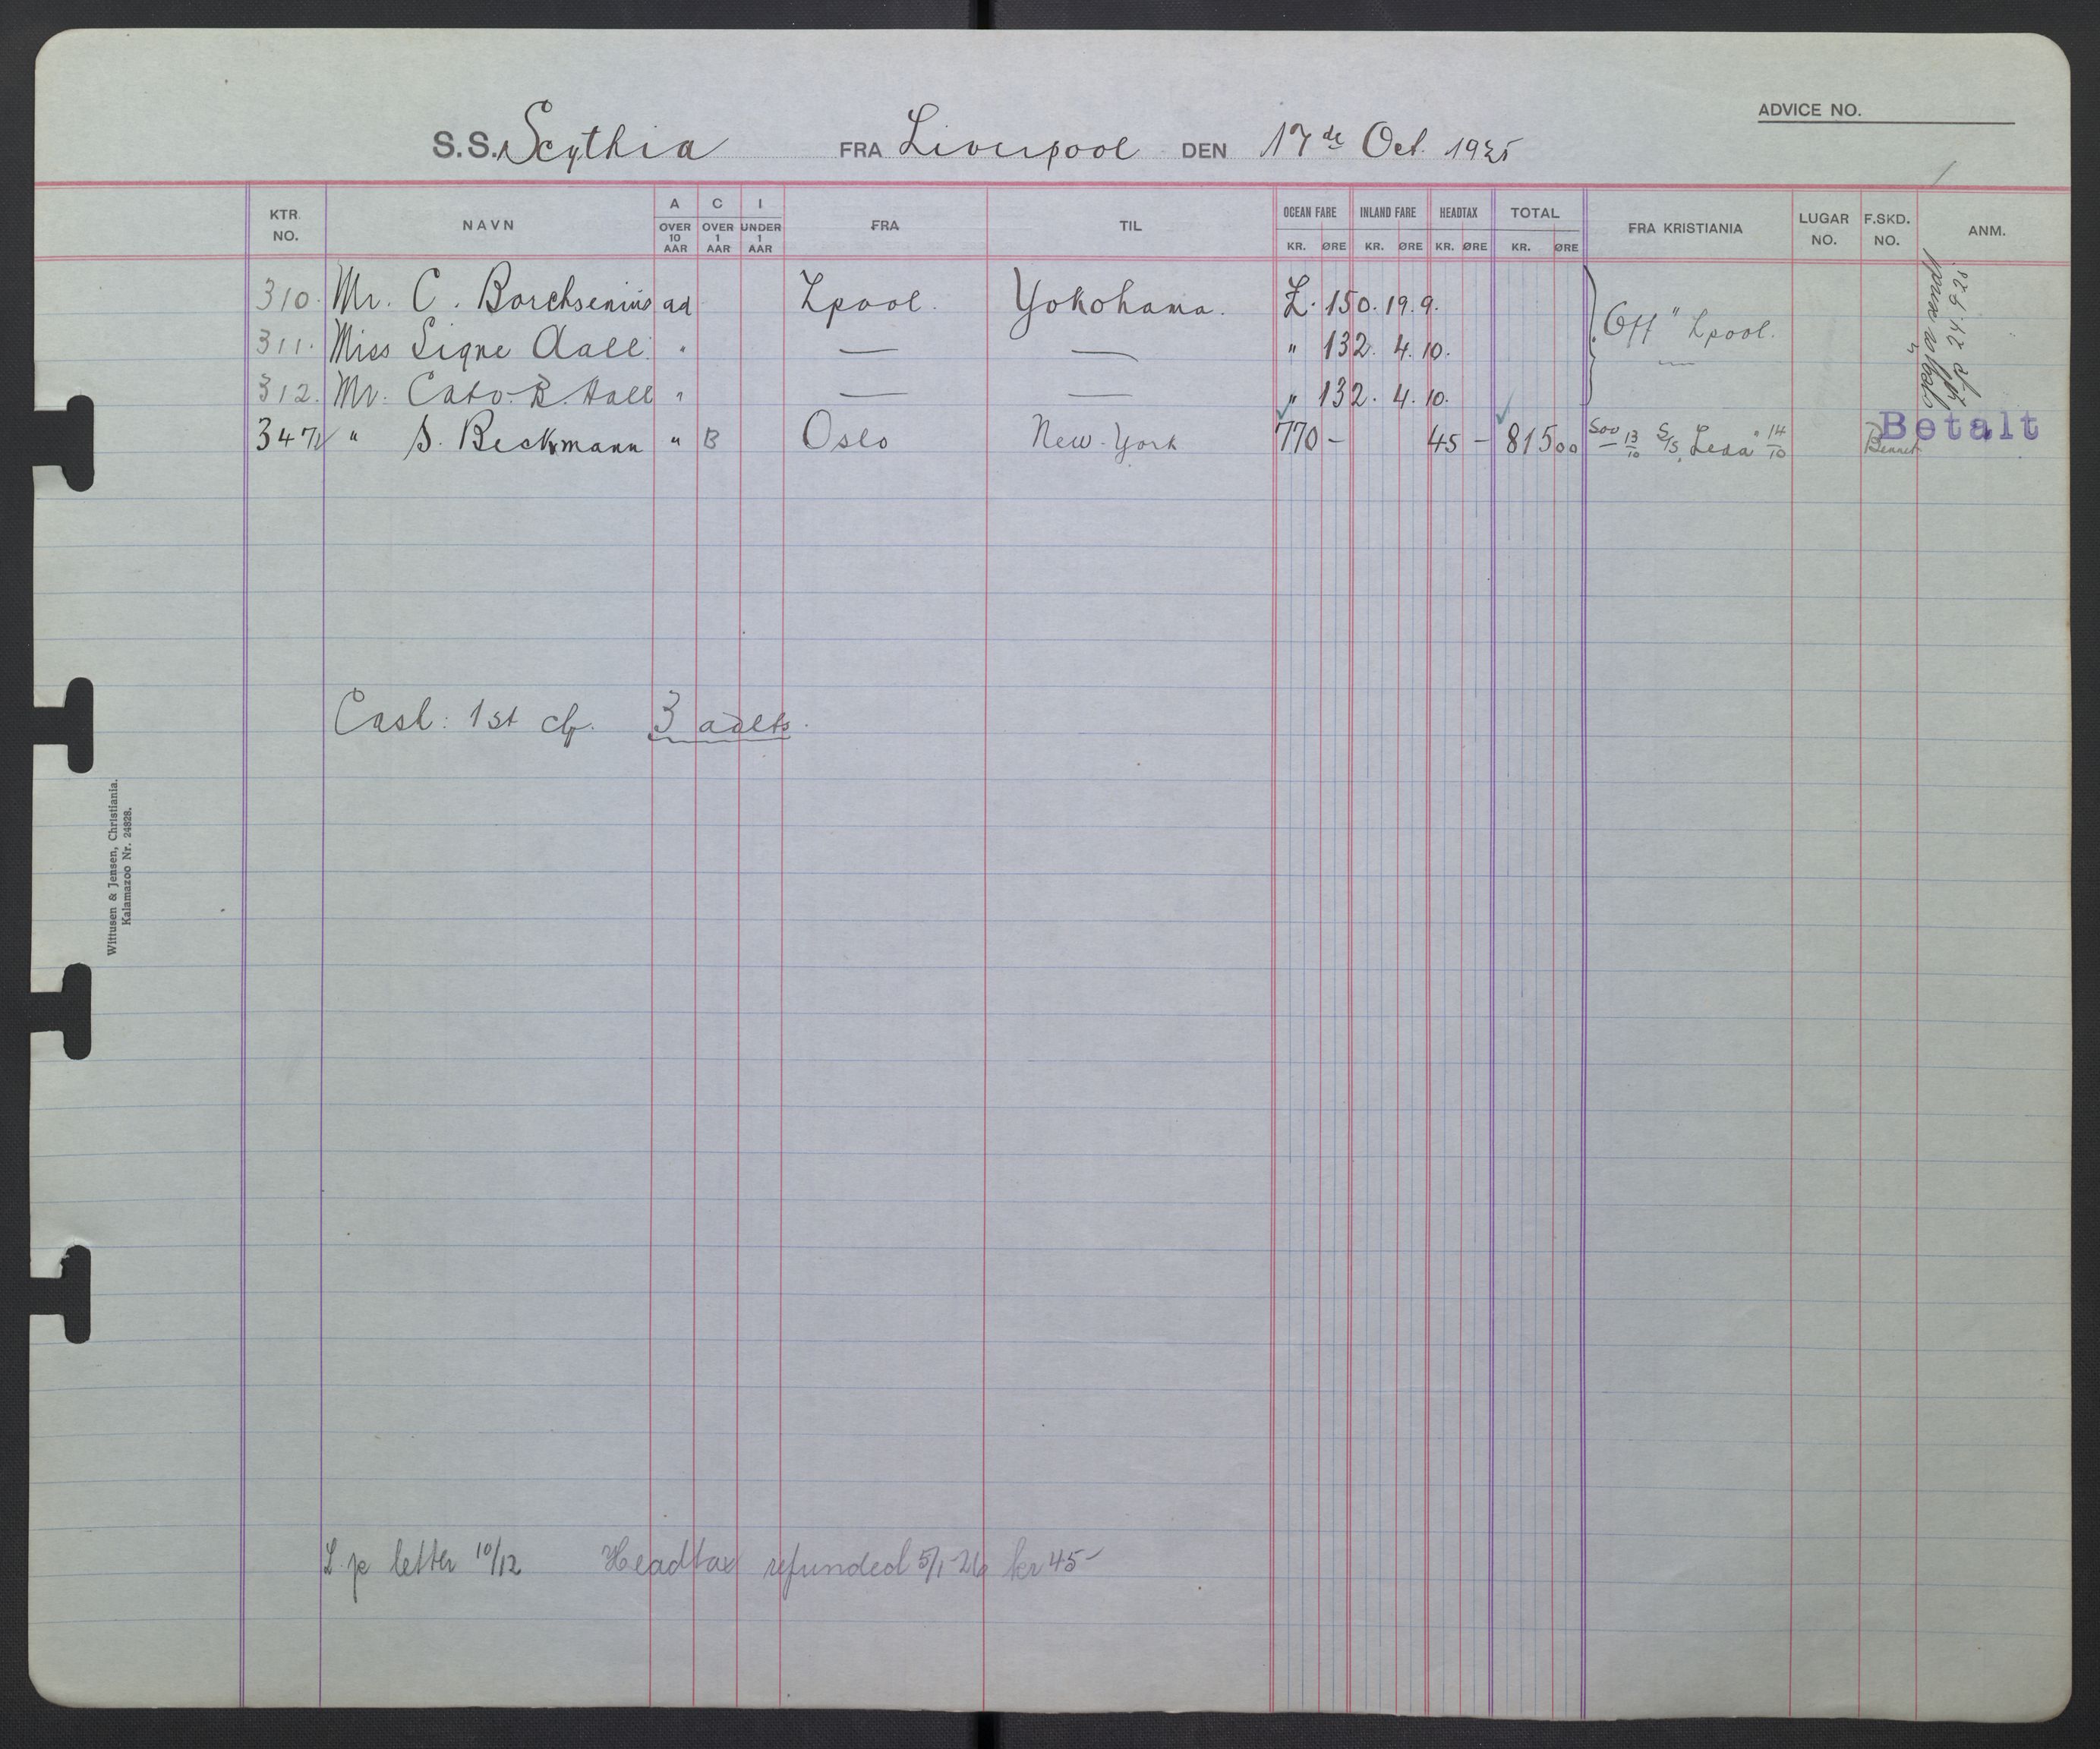 ADVICE NO.
S.S. Scythia FRA Liverpool DEN 17de Oct. 1925
KTR. NO. NAVN A OVER 10 AAR C OVER 1 AAR I UNDER 1 AAR FRA TIL OCEAN FARE KR. ØRE INLAND FARE KR. ØRE HEADTAX KR. ØRE TOTAL KR. ØRE FRA KRISTIANIA LUGAR NO. F.SKD. NO. ANM.
310. Mr. C. Borchsenius ad Lpool. Yokohama. £. 150. 19. 9. Off" Lpool.
311. Miss Signe Aall " — — " 132. 4. 10. —
312. Mr. Cato. B. Aall " — — " 132. 4. 10.
opgjør sendt
Lp 24.9.25
347 " S. Beckmann " B Oslo New-York 770 – 45 – 815 00 13/10 S/S. Leda" 14/10 Bennet Betalt
3 adlts.
Wittusen & Jensen, Christiania.
Kalamazoo Nr. 24828.
L.p letter 10/12 Headtax refunded 5/1-26 kr 45-